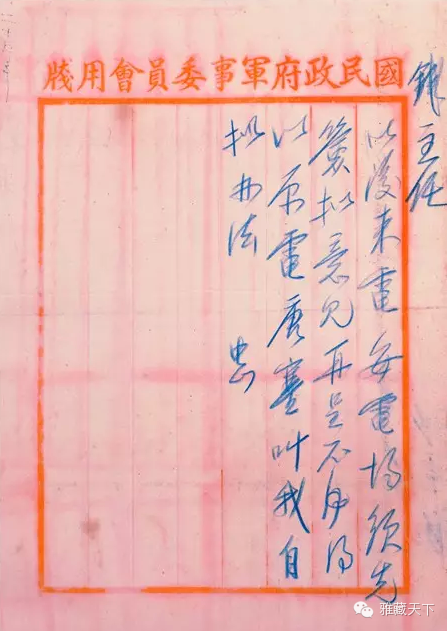 國民政府軍事委員會用牋
錢主任
以後來電每電均須先
簽拟意見再呈不得
以原電唐塞叫我自
拟办法 中正
雅藏天下